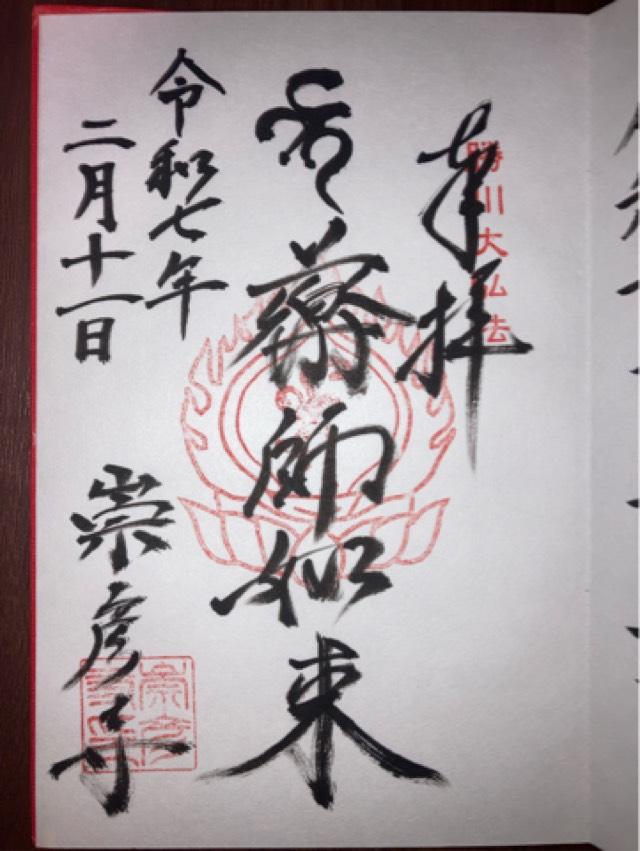 奉拝
勝川大弘法
薬師如来
令和七年
二月十一日
崇彦寺